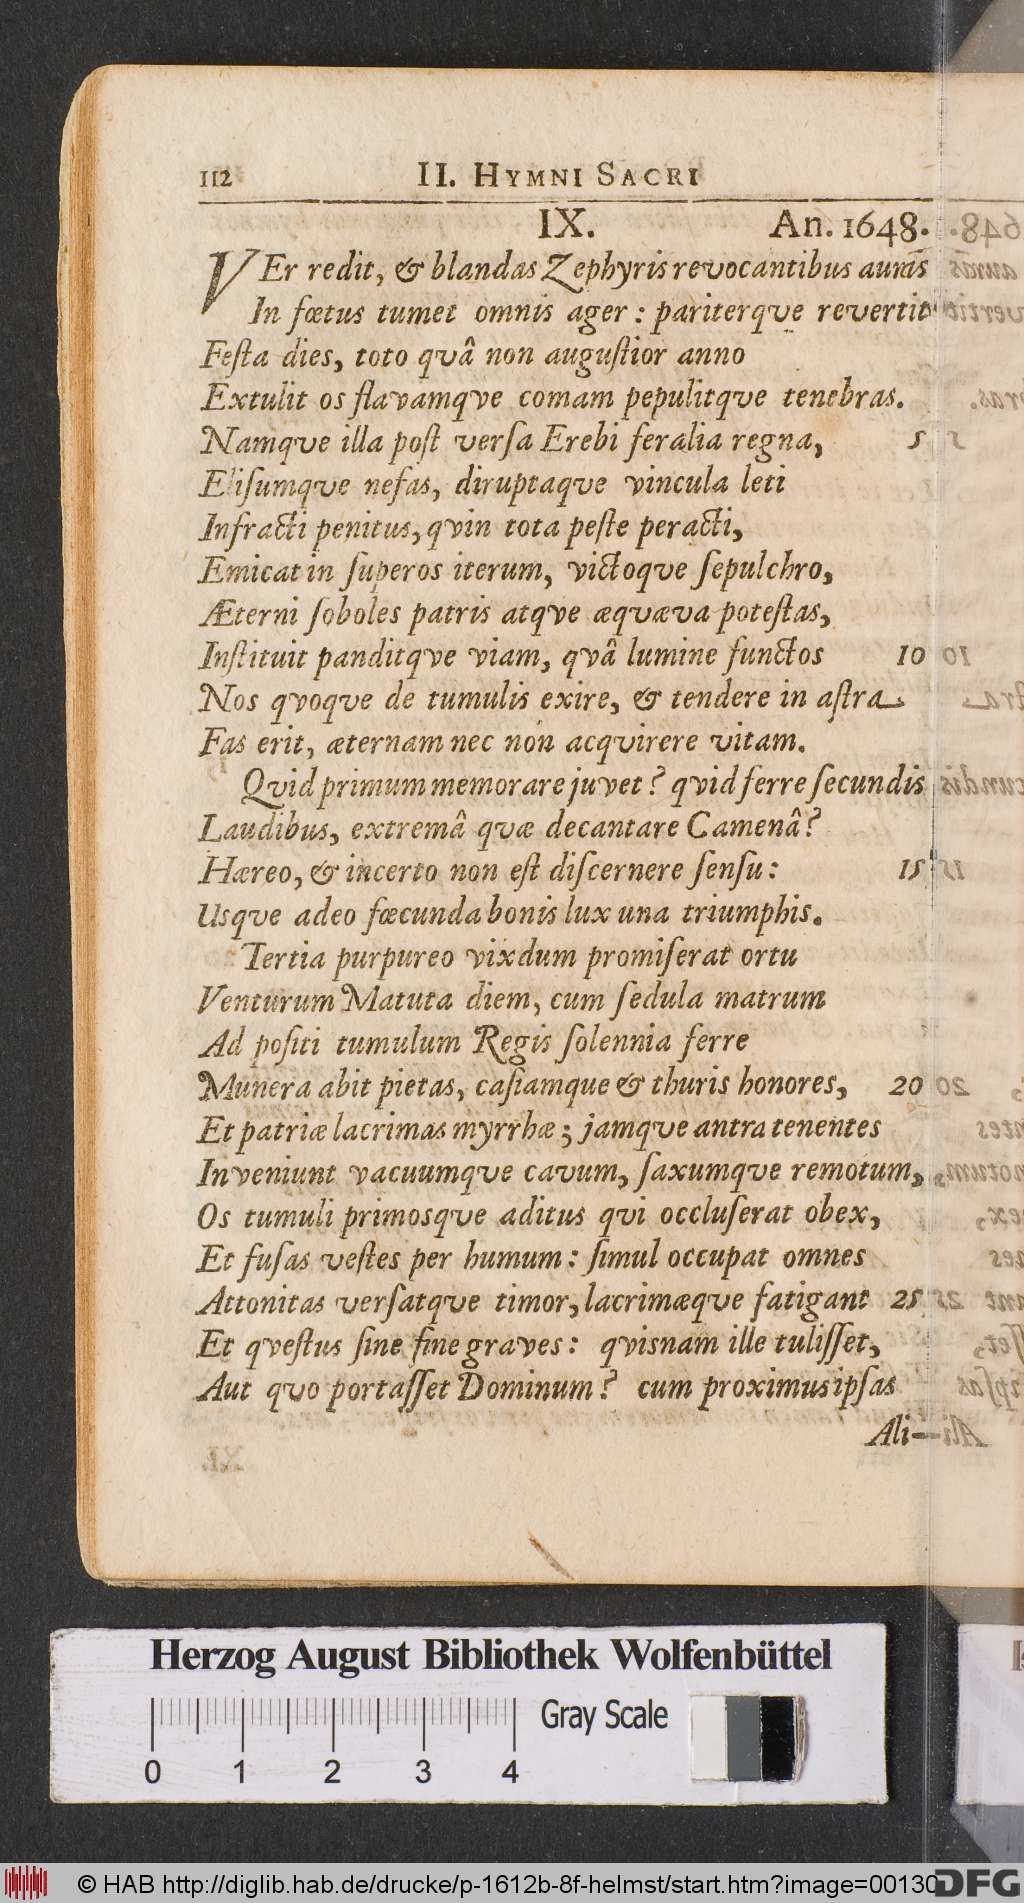 112 II. HYMNI SACRI
IX. An. 1648.
VEr redit, & blandas Zephyris revocantibus auras
In fœtus tumet omnis ager: pariterqve revertit
Feſta dies, toto qvâ non auguſtior anno
Extulit os flavamqve comam pepulitqve tenebras.
Namqve illa poſt verſa Erebi feralia regna, 5
Eliſumqve nefas, diruptaqve vincula leti
Infracti penitus, qvin tota peſte peracti,
Emicat in ſuperos iterum, victoqve ſepulchro,
Æterni ſoboles patris atqve æqvæva poteſtas,
Inſtituit panditqve viam, qvâ lumine functos 10
Nos qvoqve de tumulis exire, & tendere in aſtra
Fas erit, æternam nec non acqvirere vitam.
Qvid primum memorare juvet? qvid ferre ſecundis
Laudibus, extremâ qvæ decantare Camenâ?
Hæreo, & incerto non eſt diſcernere ſenſu: 15
Usqve adeo fœcunda bonis lux una triumphis.
Tertia purpureo vixdum promiſerat ortu
Venturum Matuta diem, cum ſedula matrum
Ad poſiti tumulum Regis ſolennia ferre
Munera abit pietas, caſiamque & thuris honores, 20
Et patriæ lacrimas myrrhæ; jamque antra tenentes
Inveniunt vacuumqve cavum, ſaxumqve remotum,
Os tumuli primosqve aditus qvi occluſerat obex,
Et fuſas veſtes per humum: ſimul occupat omnes
Attonitas verſatqve timor, lacrimæqve fatigant 25
Et qveſtus ſine fine graves: qvisnam ille tuliſſet,
Aut qvo portaſſet Dominum? cum proximus ipſas
Ali-
Herzog August Bibliothek Wolfenbüttel
Gray Scale
0 1 2 3 4
© HAB http://diglib.hab.de/drucke/p-1612b-8f-helmst/start.htm?image=00130
DFG